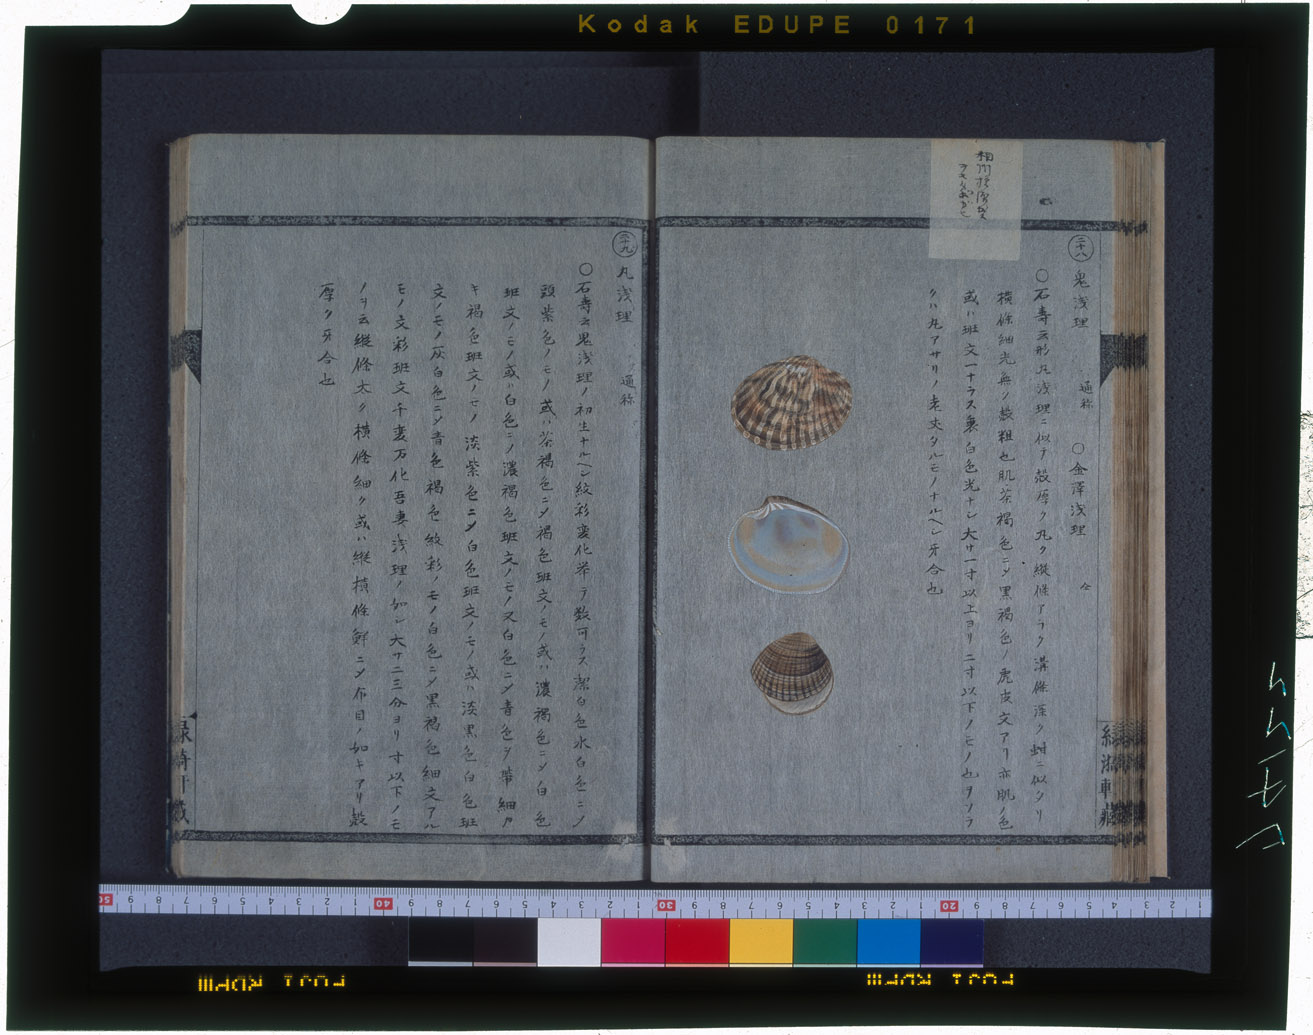 Kodak EDUPE 0171
二十八 鬼浅理 通称 ○金澤浅理 仝
○石寿云形丸浅理ニ似テ殻厚ク丸ク縦條アラク溝條深ク蚶ニ似タリ
横條細光無ノ殻粗也肌茶褐色ニメ黒褐色ノ虎皮文アリ亦肌ノ色
或ハ班文一ナラス裏白色光ナシ大サ一寸以上ヨリ二寸以下ノモノ也ヲソラ
クハ丸アサリノ老大タルモノナルヘシ牙合也
二十九 丸浅理 通称
○石寿云鬼浅理ノ初生ナルヘシ紋彩変化挙テ数可ラス潔白色氷白色ニメ
頭紫色ノモノ或ハ茶褐色ニメ褐色班文ノモノ或ハ濃褐色ニメ白色
班文ノモノ或ハ白色ニメ濃褐色班文ノモノ又白色ニメ青色ヲ帯細カ
キ褐色班文ノモノ淡紫色ニメ白色班文ノモノ或ハ淡黒色白色班
文ノモノ灰白色ニメ青色褐色紋彩ノモノ白色ニメ黒褐色細文アル
モノ文彩班文千変万化吾妻浅理ノ如シ大サ二三分ヨリ寸以下ノモ
ノヲ云縦條太ク横條細ク或ハ縦横條鮮ニメ布目ノ如キアリ殻
厚ク牙合也
FUJI RDPIII
FUJI RDPIII